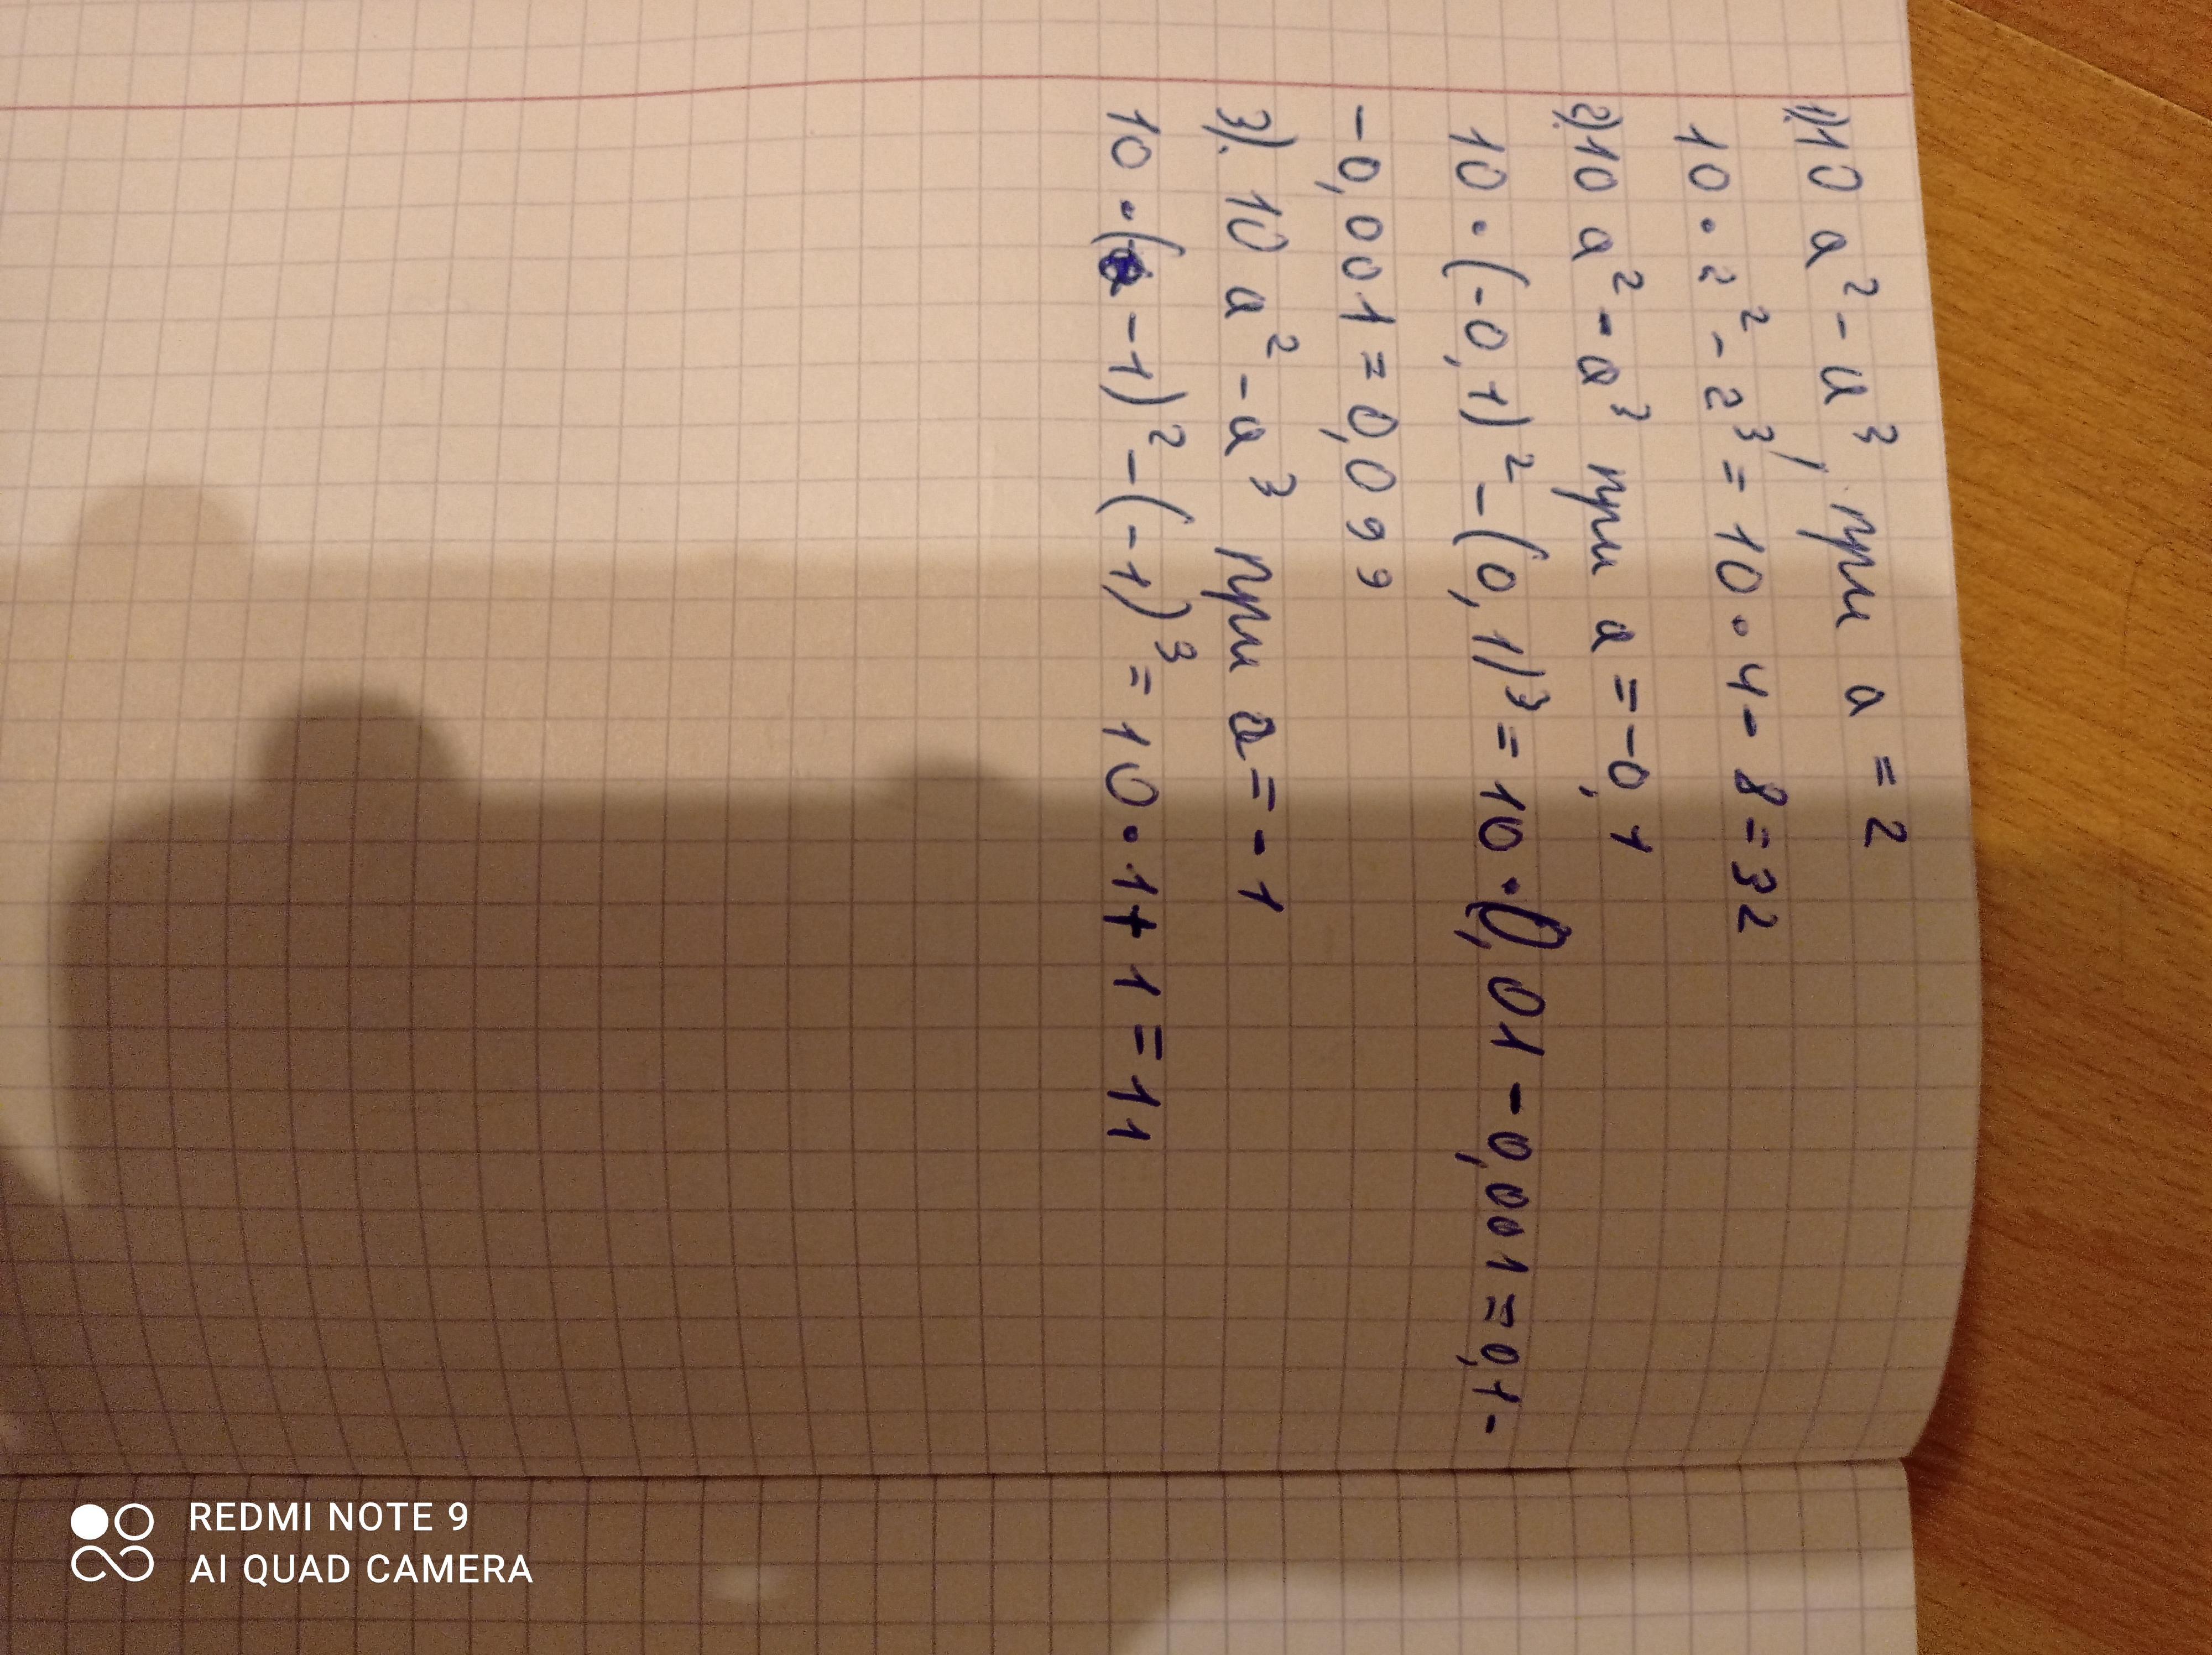 1) 10 a² - a³, при a = 2
10 · 2² - 2³ = 10 · 4 - 8 = 32
2) 10 a² - a³ при a = -0,1
10 · (-0,1)² - (0,1)³ = 10 · 0,01 - 0,001 = 0,1 -
- 0,001 = 0,099
3). 10 a² - a³ при a = - 1
10 · ( - 1)² - (- 1)³ = 10 · 1 + 1 = 11
REDMI NOTE 9
AI QUAD CAMERA